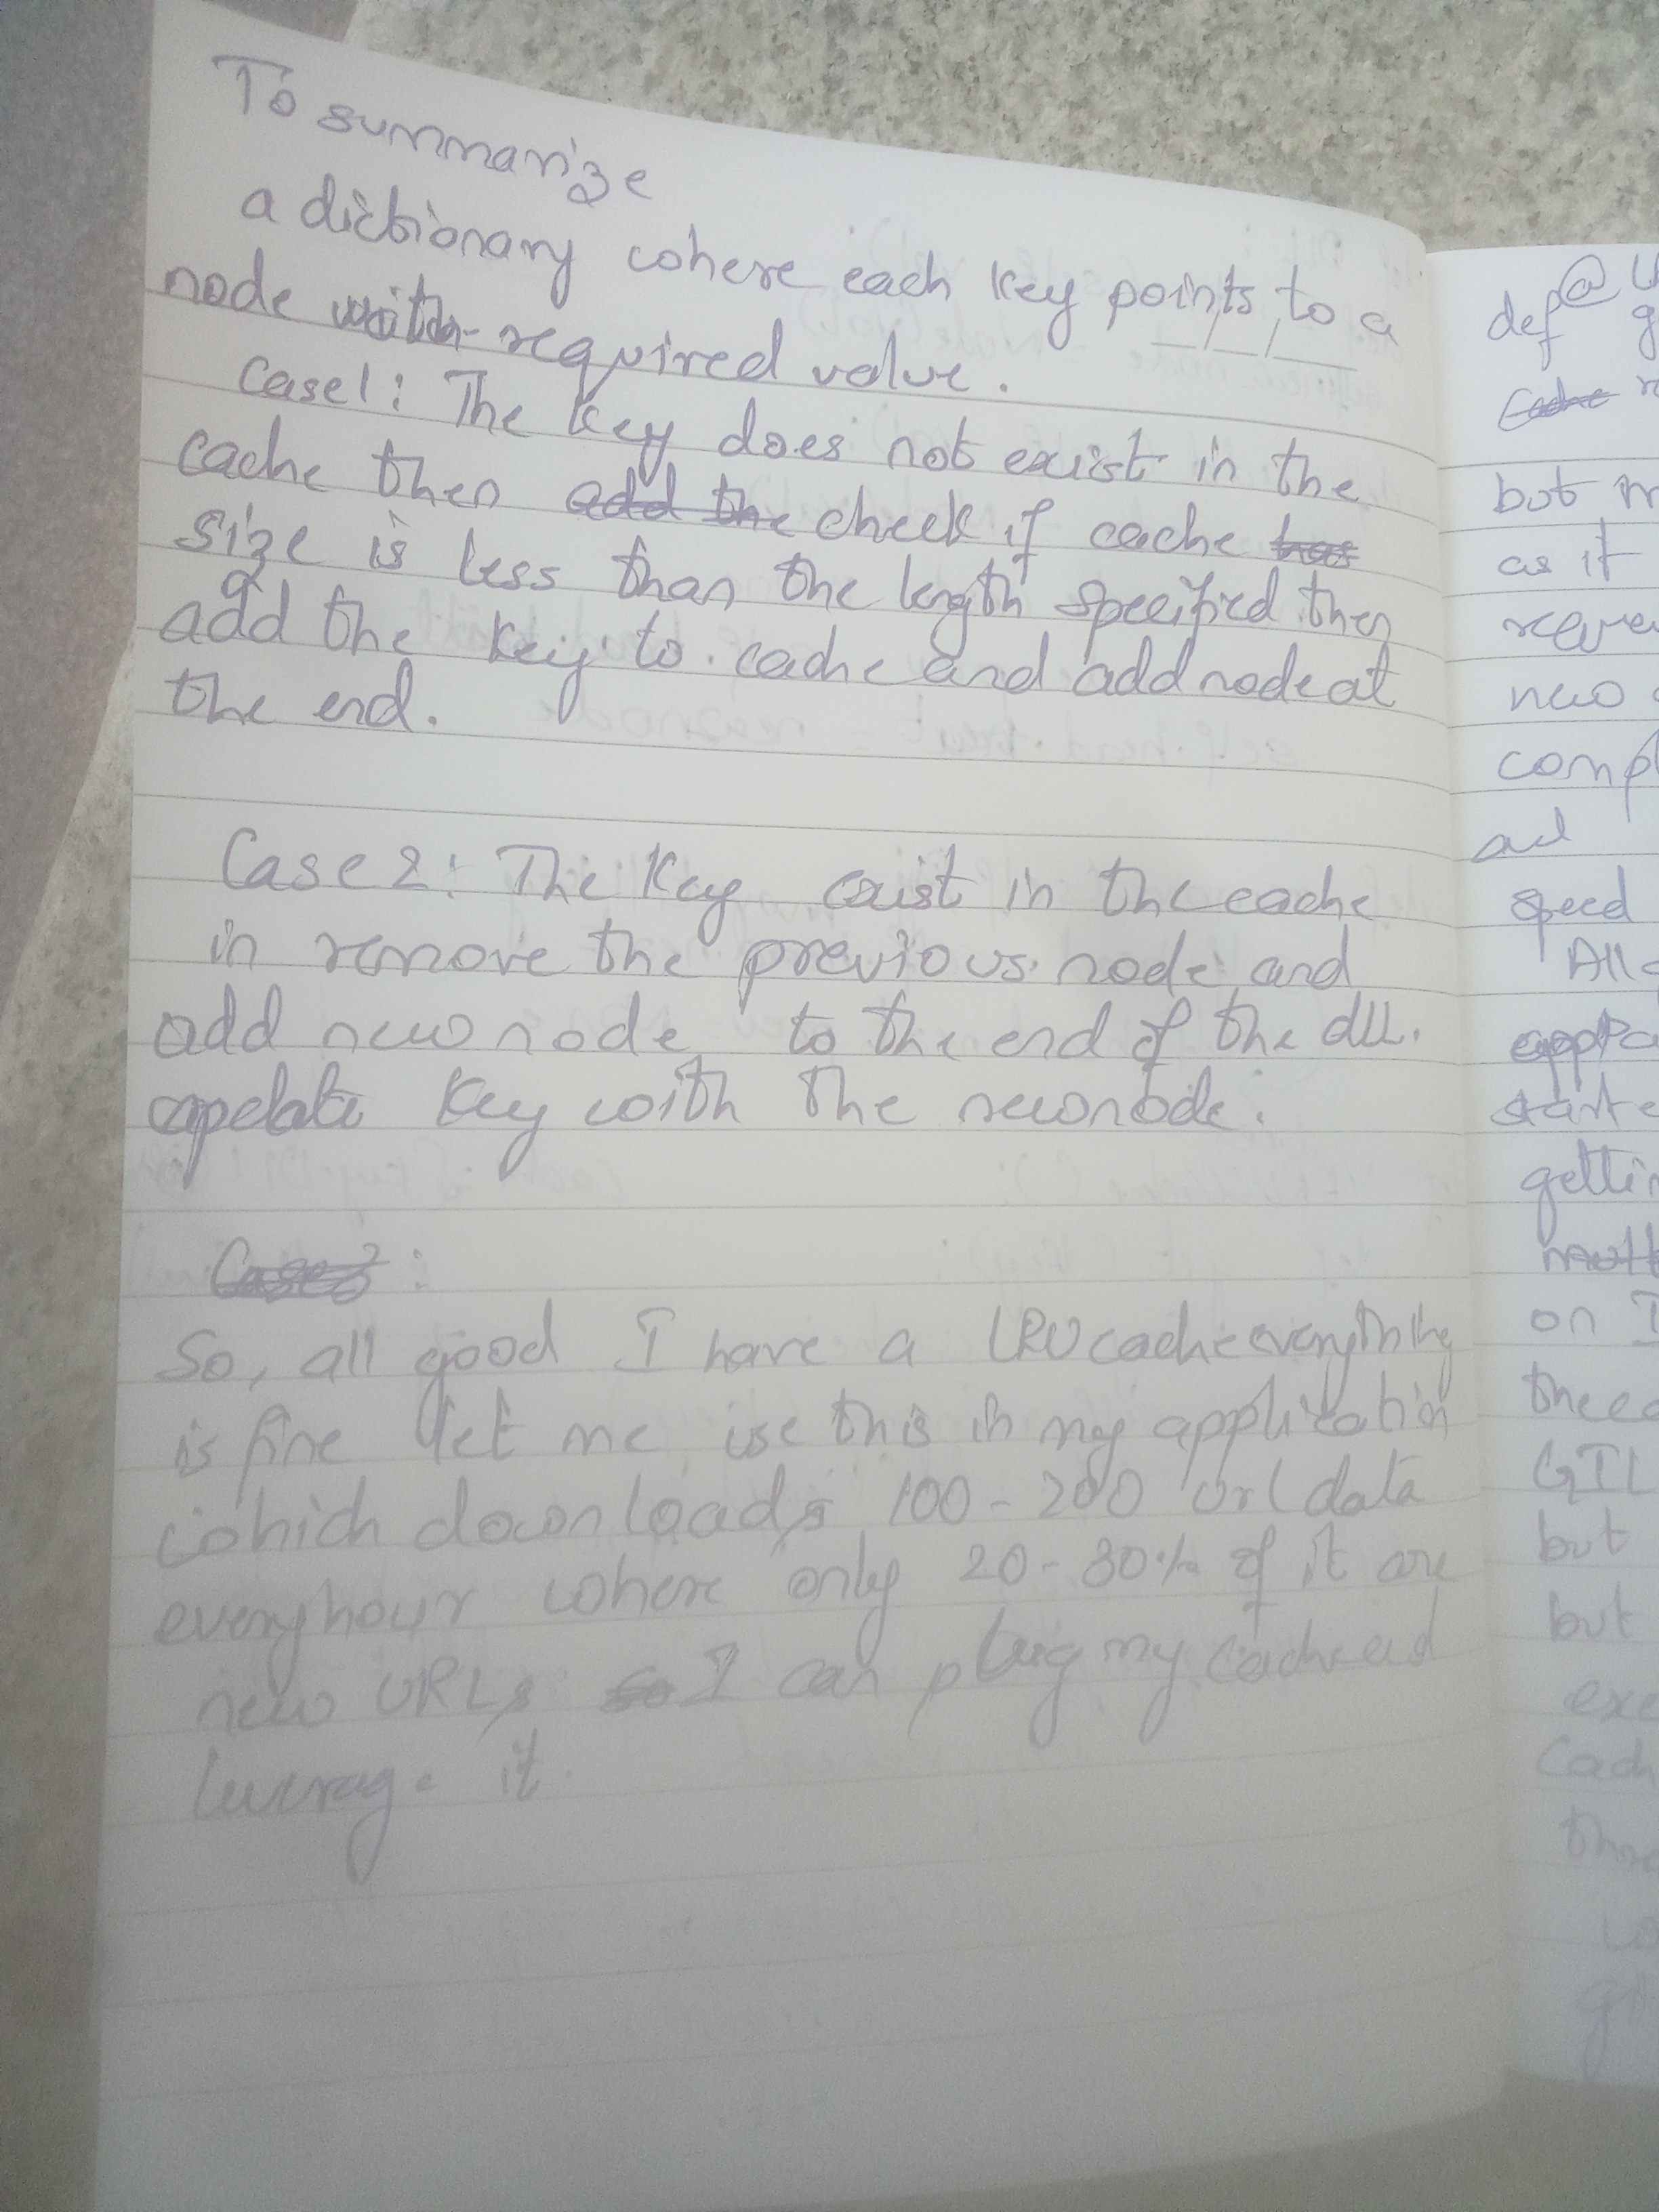 To summarize
a dictionary where each key points to a
node with required value.
Case1: The key does not exist in the
cache then add the check if cache has
size is less than the length specified then
add the key to cache and add node at
the end.
Case 2: The key exist in the cache
in remove the previous node and
add new node to the end of the dll.
update key with the newnode.
Case3:
So, all good I have a LRU cache everything
is fine let me use this in my application
which downloads 100-200 url data
everyhour where only 20-30% of it are
new URLs so I can plug my cache and
leverage it.
def @
Cache
but
as it
new
speed
on I
GIL
but
but